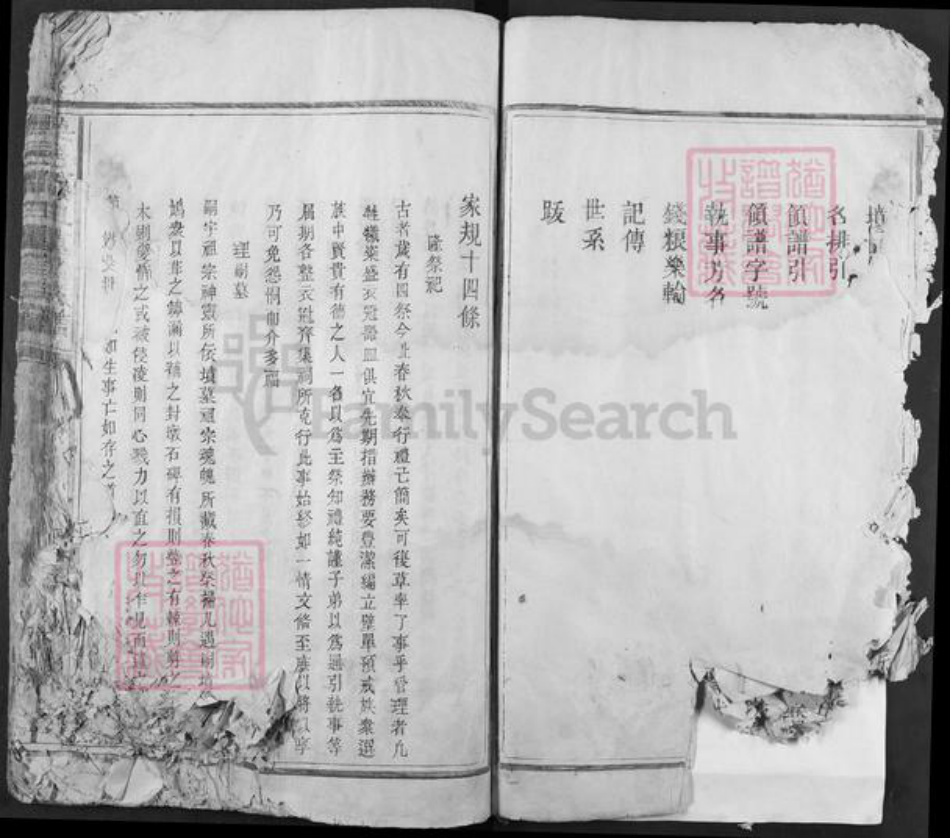 名排引
領譜引
領譜字號
執事芳名
錢粮樂輸
記傳
世系
跋
家規十四條
隆祭祀
古者歲有四祭今止春秋奉行禮已簡矣可復草率了事乎管理者凡
牲犧粢盛衣冠器皿俱宜先期指辦務要豊潔編立壁單預戒於衆選
族中賢貴有德之人一名以為主祭知禮純謹子弟以為通引執事等
屆期各整衣冠齊集祠所克行此事始終如一情文備至庶以將
乃可免怨恫而介多福
理祠墓
祠宇祖宗神靈所依墳墓祖宗魂魄所藏春秋祭掃凡遇祠墳
以葺之 漏以補之封墩石碑有損則整之有棘則剪之
木則愛惜之或被侵凌則同心戮力以直之勿以乍見而
如生事亡如存之
FamilySearch